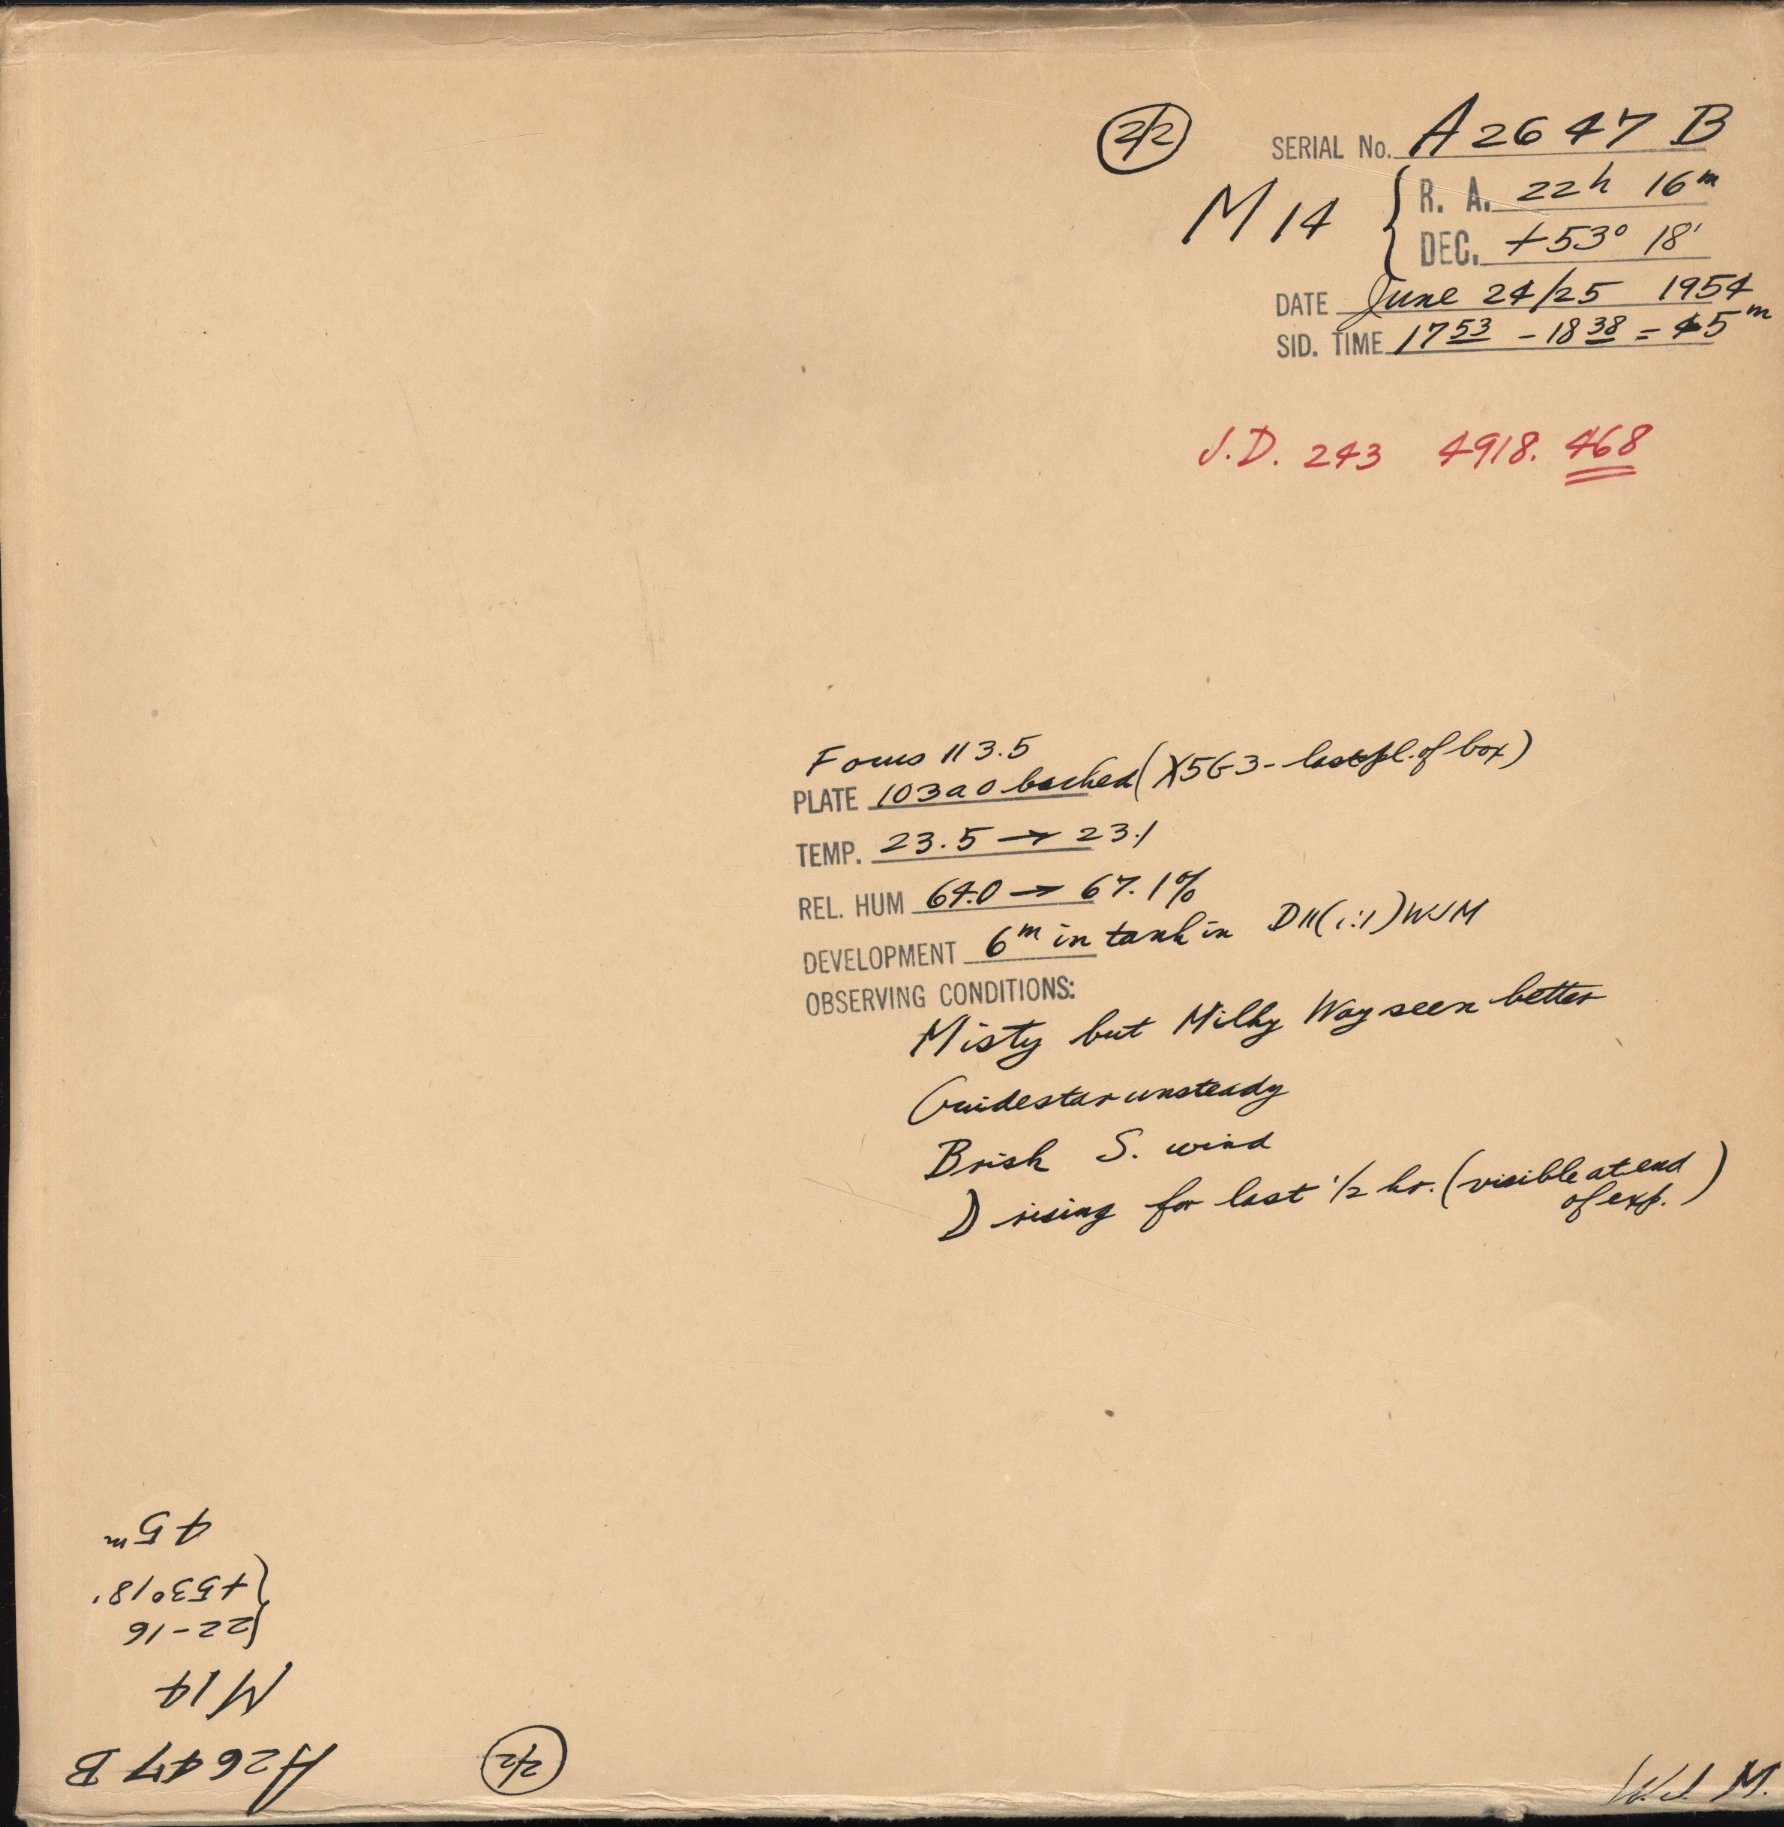 2/2
SERIAL No. A2647 B
M 14 { R. A. 22h 16m
DEC. +53° 18'
DATE June 24/25 1954
SID. TIME 17 53 - 18 38 = 45m
J.D. 243 4918.468
Focus 113.5
PLATE 103a0 backed (X5G3 - last pl. of box)
TEMP. 23.5 → 23.1
REL. HUM 64.0 → 67.1%
DEVELOPMENT 6m in tank in D11 (1:1) WJM
OBSERVING CONDITIONS:
Misty but Milky Way seen better
Guidestar unsteady
Brisk S. wind
☽ rising for last 1/2 hr. (visible at end
of exp.)
W.J.M.
2/2
A2647 B
M14
{22-16
{+53°18'
45m